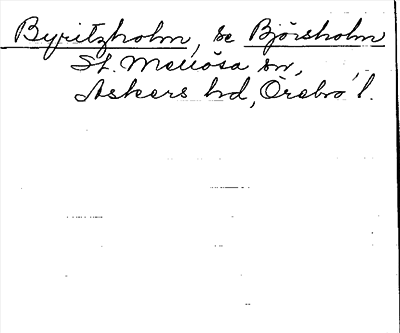 Byritzholm, se Björsholm
St. Mellösa sn,
Askers hd, Örebro l.